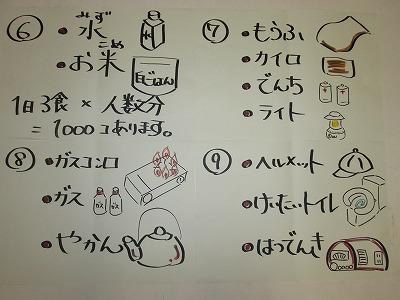 ⑥
みず
・水
こめ
・お米
白ごはん
1日3食×人数分
=1000コあります。
⑦
・もうふ
・カイロ
・でんち
・ライト
⑧
・ガスコンロ
・ガス
ガス ガス
・やかん
⑨
・ヘルメット
・けいたいトイレ
・はつでんき